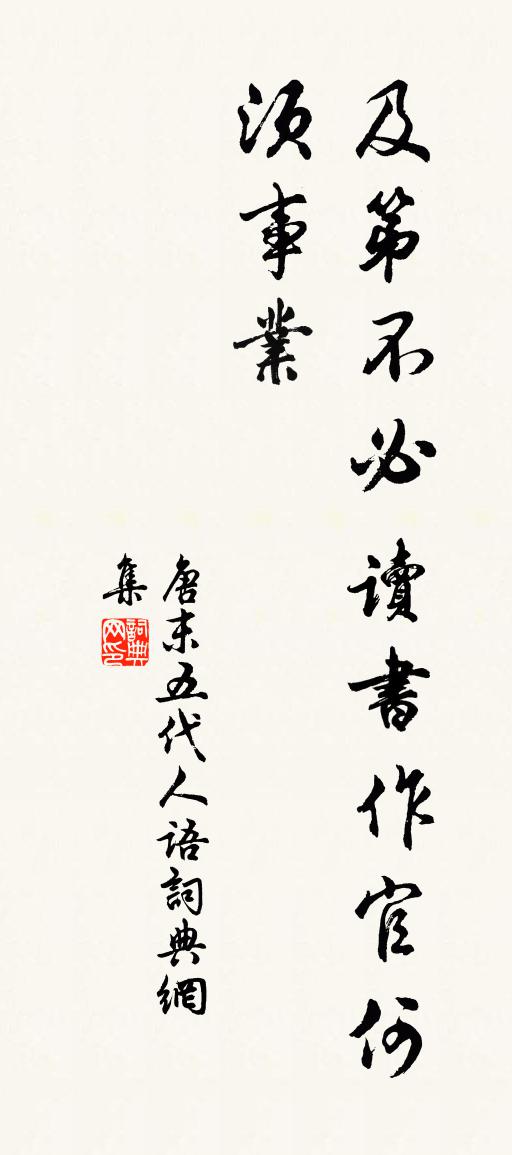 及第不必讀書作官何
須事業
唐末五代人語詞典網
集
詞典
网印